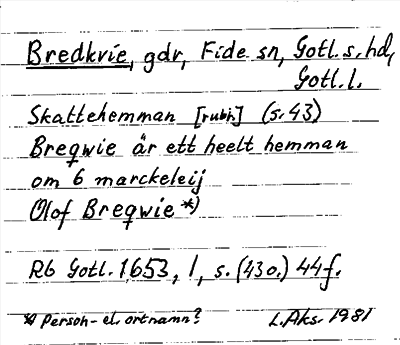 Bredkvie, gdr, Fide sn, Gotl. s. hd,
Gotl. l.
Skattehemman [rubr.] (s. 43)
Breqwie är ett heelt hemman
om 6 marckeleij
Olof Breqwie *)
Rb Gotl. 1653, 1, s. (43 o.) 44 f.
*) Person- el. ortnamn? L. Aks. 1981